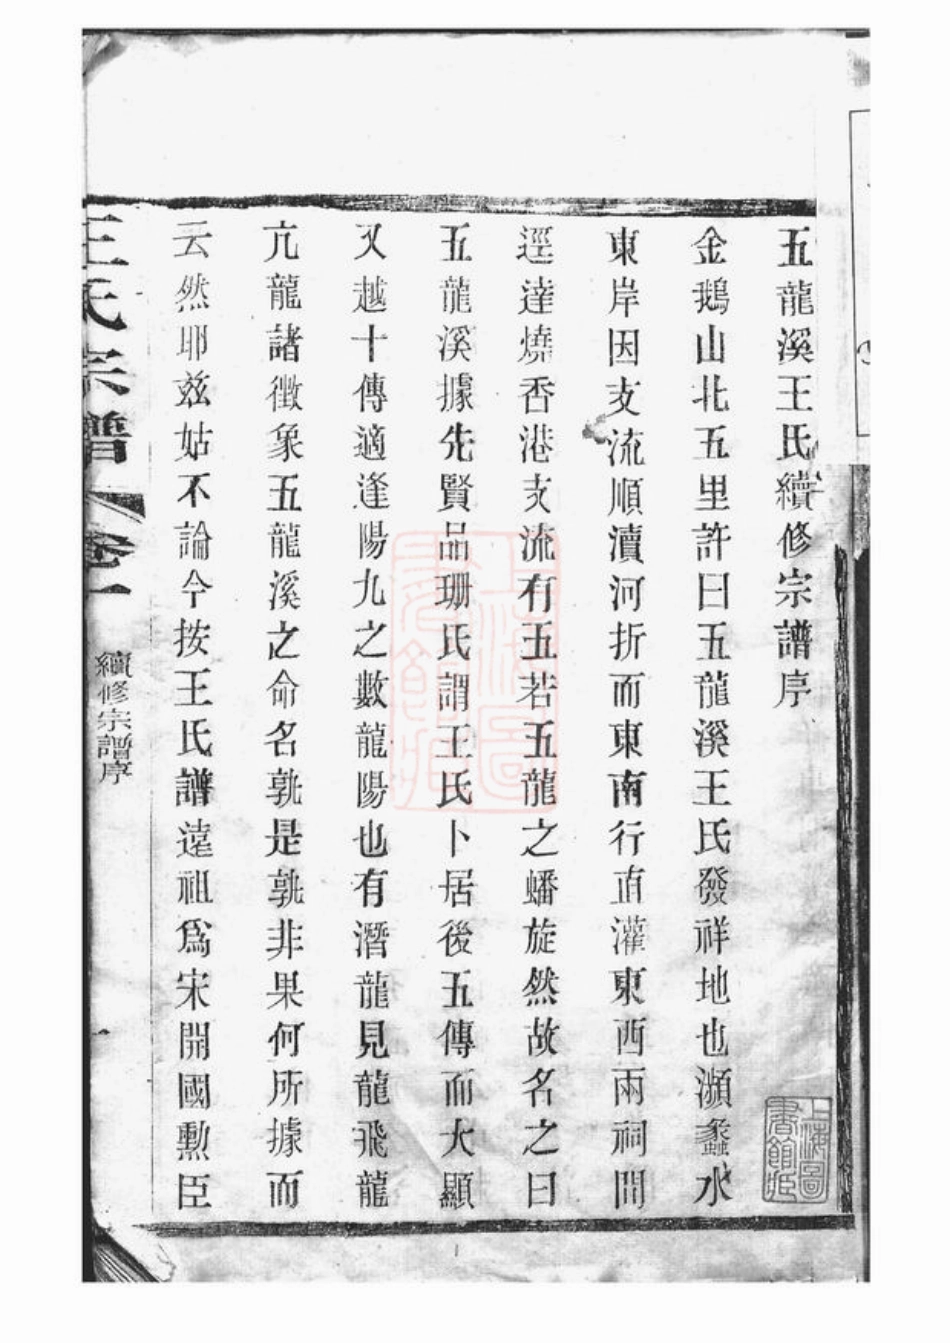 五龍溪王氏續修宗譜序
金鵝山北五里許曰五龍溪王氏發祥地也瀕蠡水
東岸因支流順瀆河折而東南行直灌東西兩祠間
逕達燒香港支流有五若五龍之蟠旋然故名之曰
五龍溪據先賢品珊氏謂王氏卜居後五傳而大顯
又越十傳適逢陽九之數龍陽也有潛龍見龍飛龍
亢龍諸徵象五龍溪之命名孰是孰非果何所據而
云然耶茲姑不論今按王氏譜遠祖爲宋開國勳臣
王氏宗譜
卷一
續修宗譜序
一
上海圖書館藏
上海圖書館藏